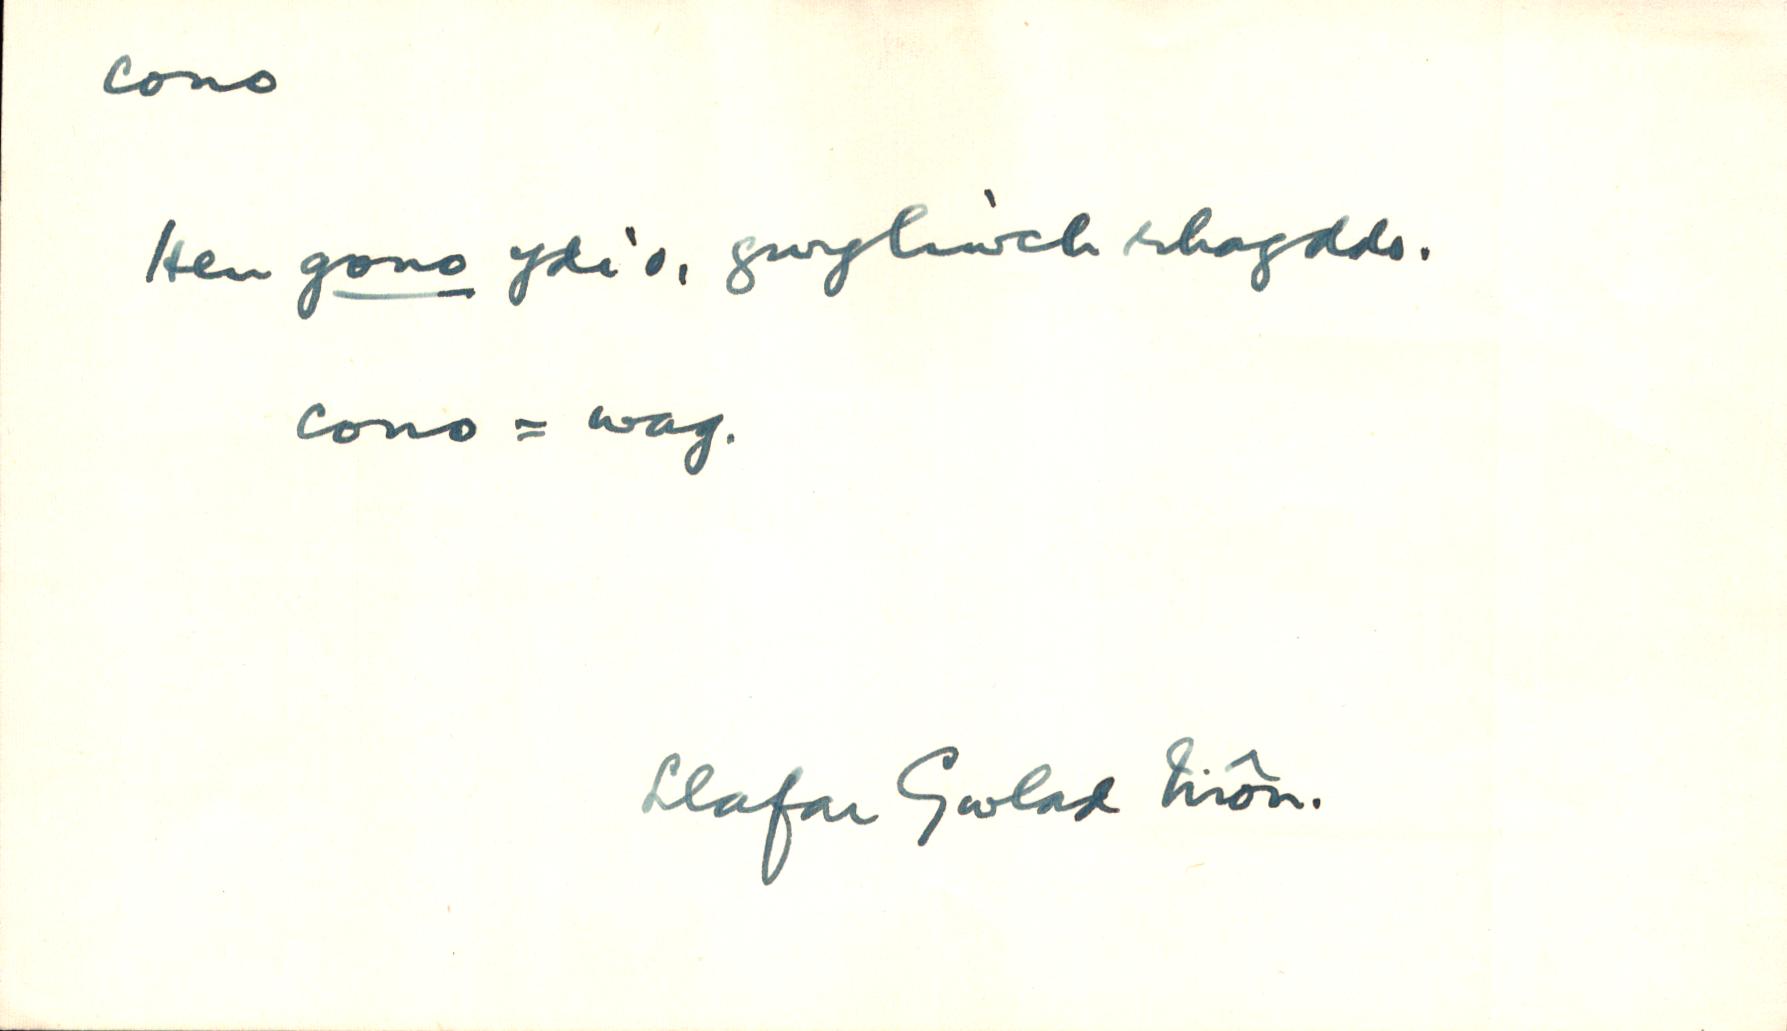 cono
Hen gono ydi'o, gwyliwch rhagddo.
cono = wag.
Llafar Gwlad Môn.